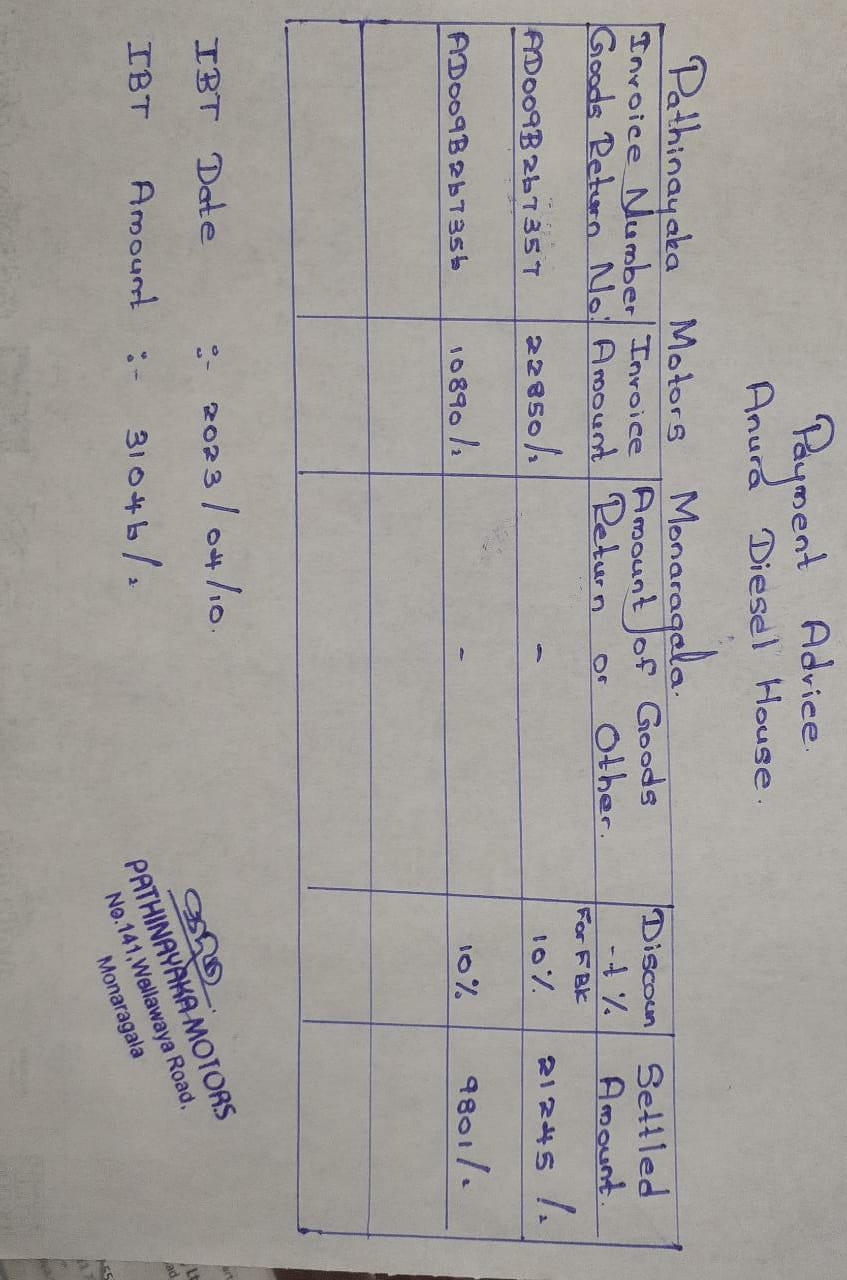 Payment Advice.
Anura Diesel House.
Pathinayaka Motors Monaragala.
Invoice Number Invoice Amount of Goods Discoun Settled
Goods Return No: Amount Return or Other. -t % Amount.
For FBK
AD009B267357 22850/= - 10% 21245/=
AD009B267356 10890/= - 10% 9801/=
IBT Date :- 2023/04/10.
IBT Amount :- 31046/=
PATHINAYAKA MOTORS
No.141, Wellawaya Road,
Monaragala